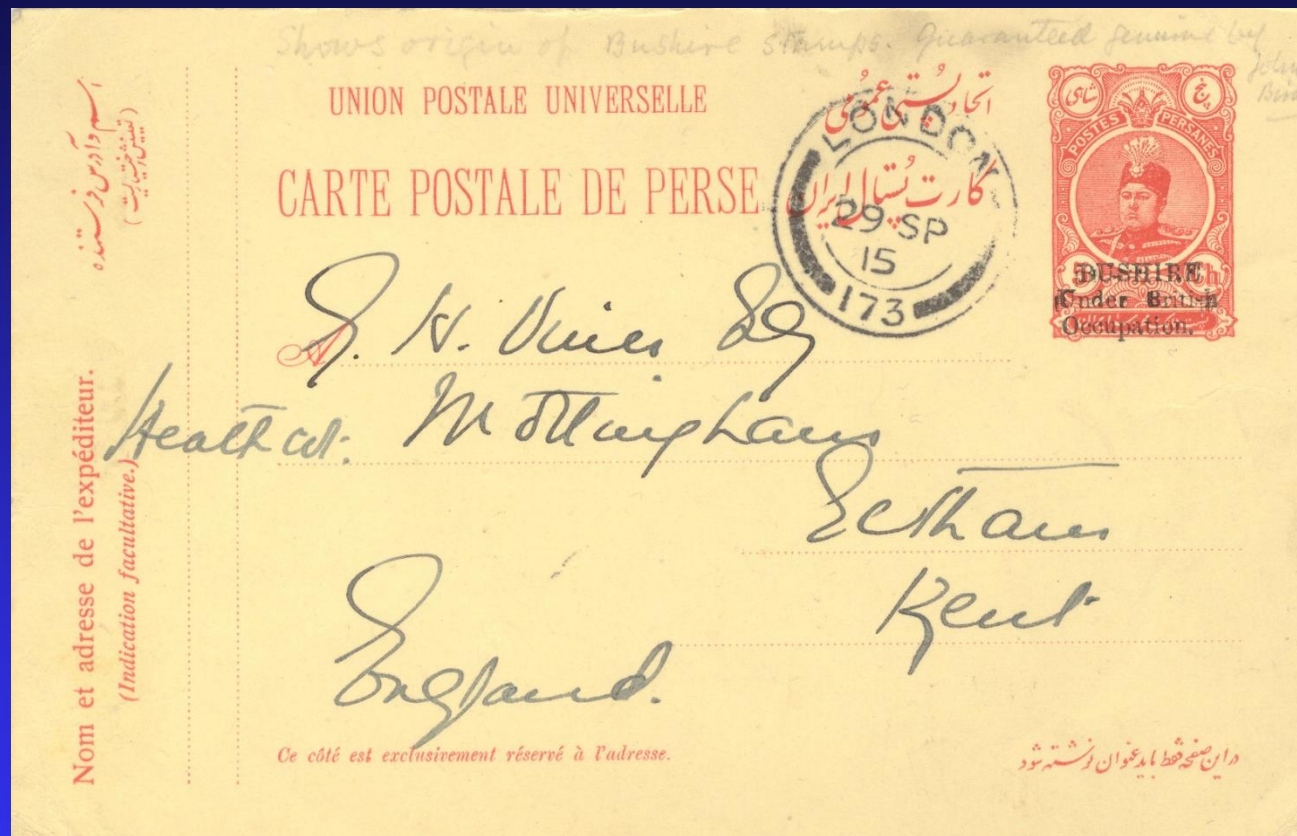 Shows origin of Bushire Stamps. Guaranteed genuine by
John
UNION POSTALE UNIVERSELLE
اتحاد پستی عمومی
CARTE POSTALE DE PERSE
کارت پستال ایران
شاهی
پنج
POSTES PERSANES
BUSHIRE
Under British
Occupation.
LONDON
29 SP
15
173
A
H. Vines Esq
Heathcot. Mottingham
Eltham
Kent
England.
اسم و آدرس فرستنده
Nom et adresse de l'expéditeur.
(Indication facultative.)
Ce côté est exclusivement réservé à l'adresse.
در این صفحه فقط باید عنوان نوشته شود